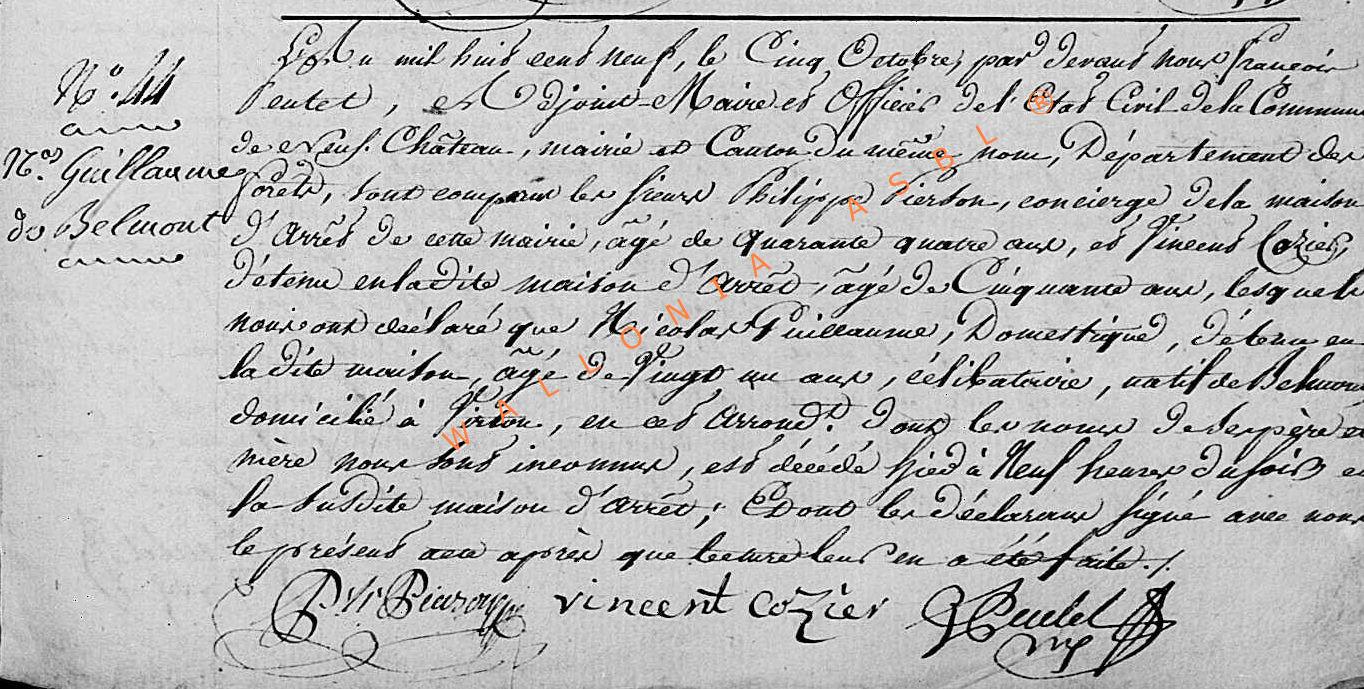 N.° 44
N.as Guillaume
de Belmont
L'an mil huit cens neuf, le Cinq Octobre, par devant nous François
Pentet, Adjoint-Maire et Officier de l'Etat Civil de la Commune
de Neuf-Château, mairie et Canton du même nom, Département des
Forêts, sont comparus les sieurs Philippe Pierson, concierge de la maison
d'Arrêt de cette mairie, âgé de quarante quatre ans, et Vincent Cozier,
détenu en la dite maison d'Arrêt, âgé de Cinquante ans, lesquels
nous ont déclaré que Nicolas Guillaume, Domestique, détenu en
la dite maison, âgé de Vingt un ans, célibataire, natif de Belmont
domicilié à Virton, en cet Arrond.t dont les noms de ses père et
mère nous sont inconnus, est décédé hier à Neuf heures du soir en
la susdite maison d'Arrêt; Et ont les déclarans signé avec nous
le présent acte après que lecture leur en a été faite ./.
Ph Pierson vincent cozier
WALLONIA ASBL ®